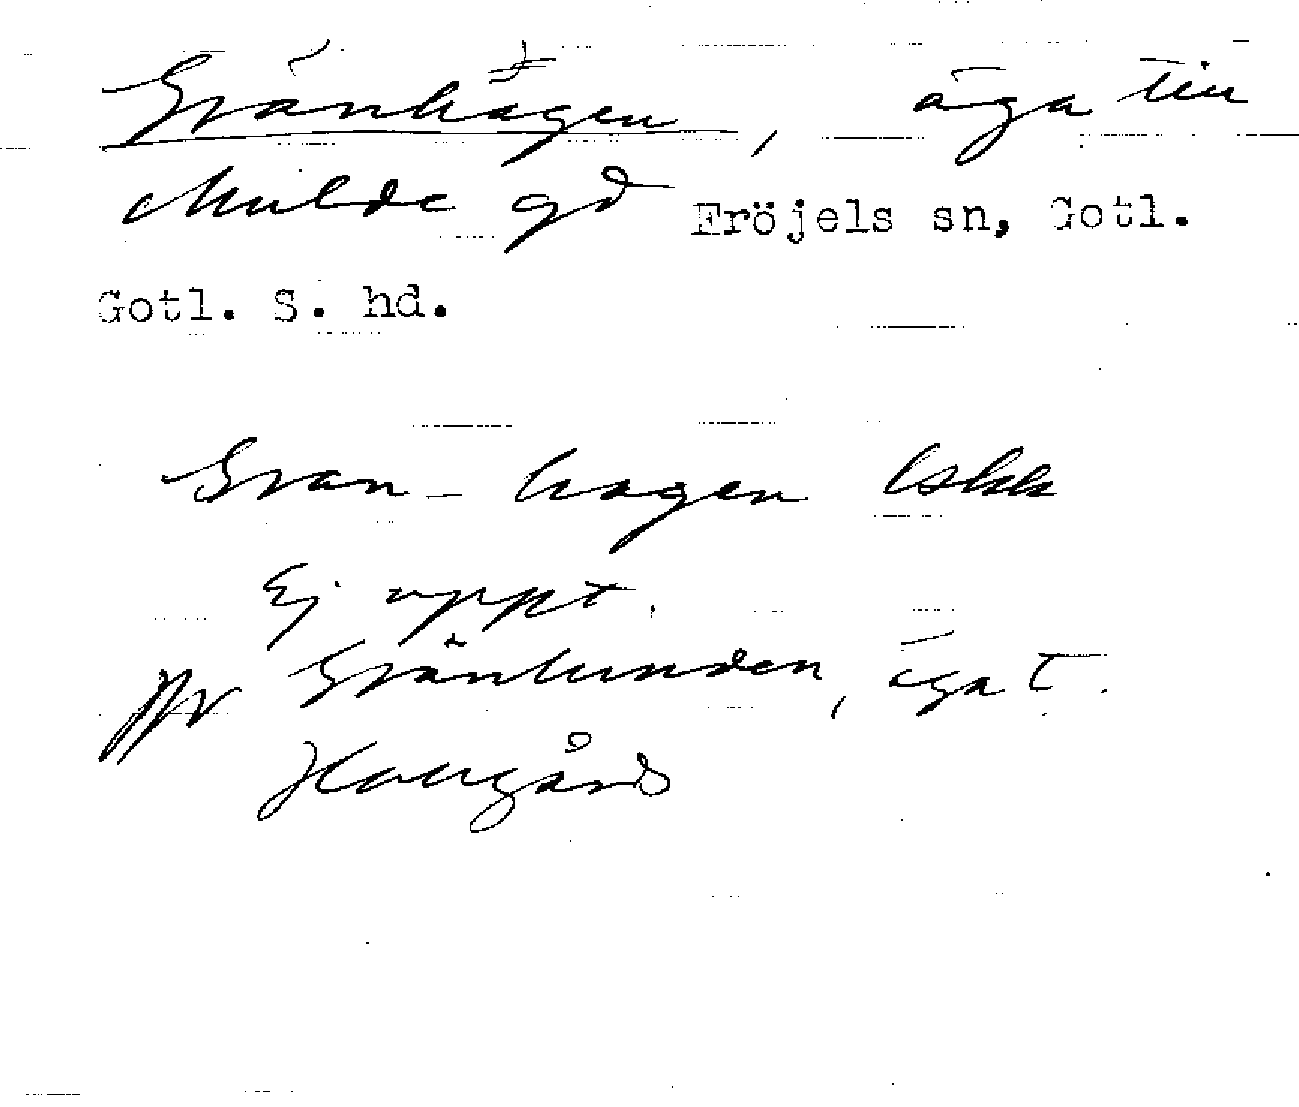 Granhagen, äga till
Mulde gd Fröjels sn, Gotl.
Gotl. S. hd.
Gran-hagen
Ej uppt.
Jfr Gränlunden, äga t.
Hallgårds